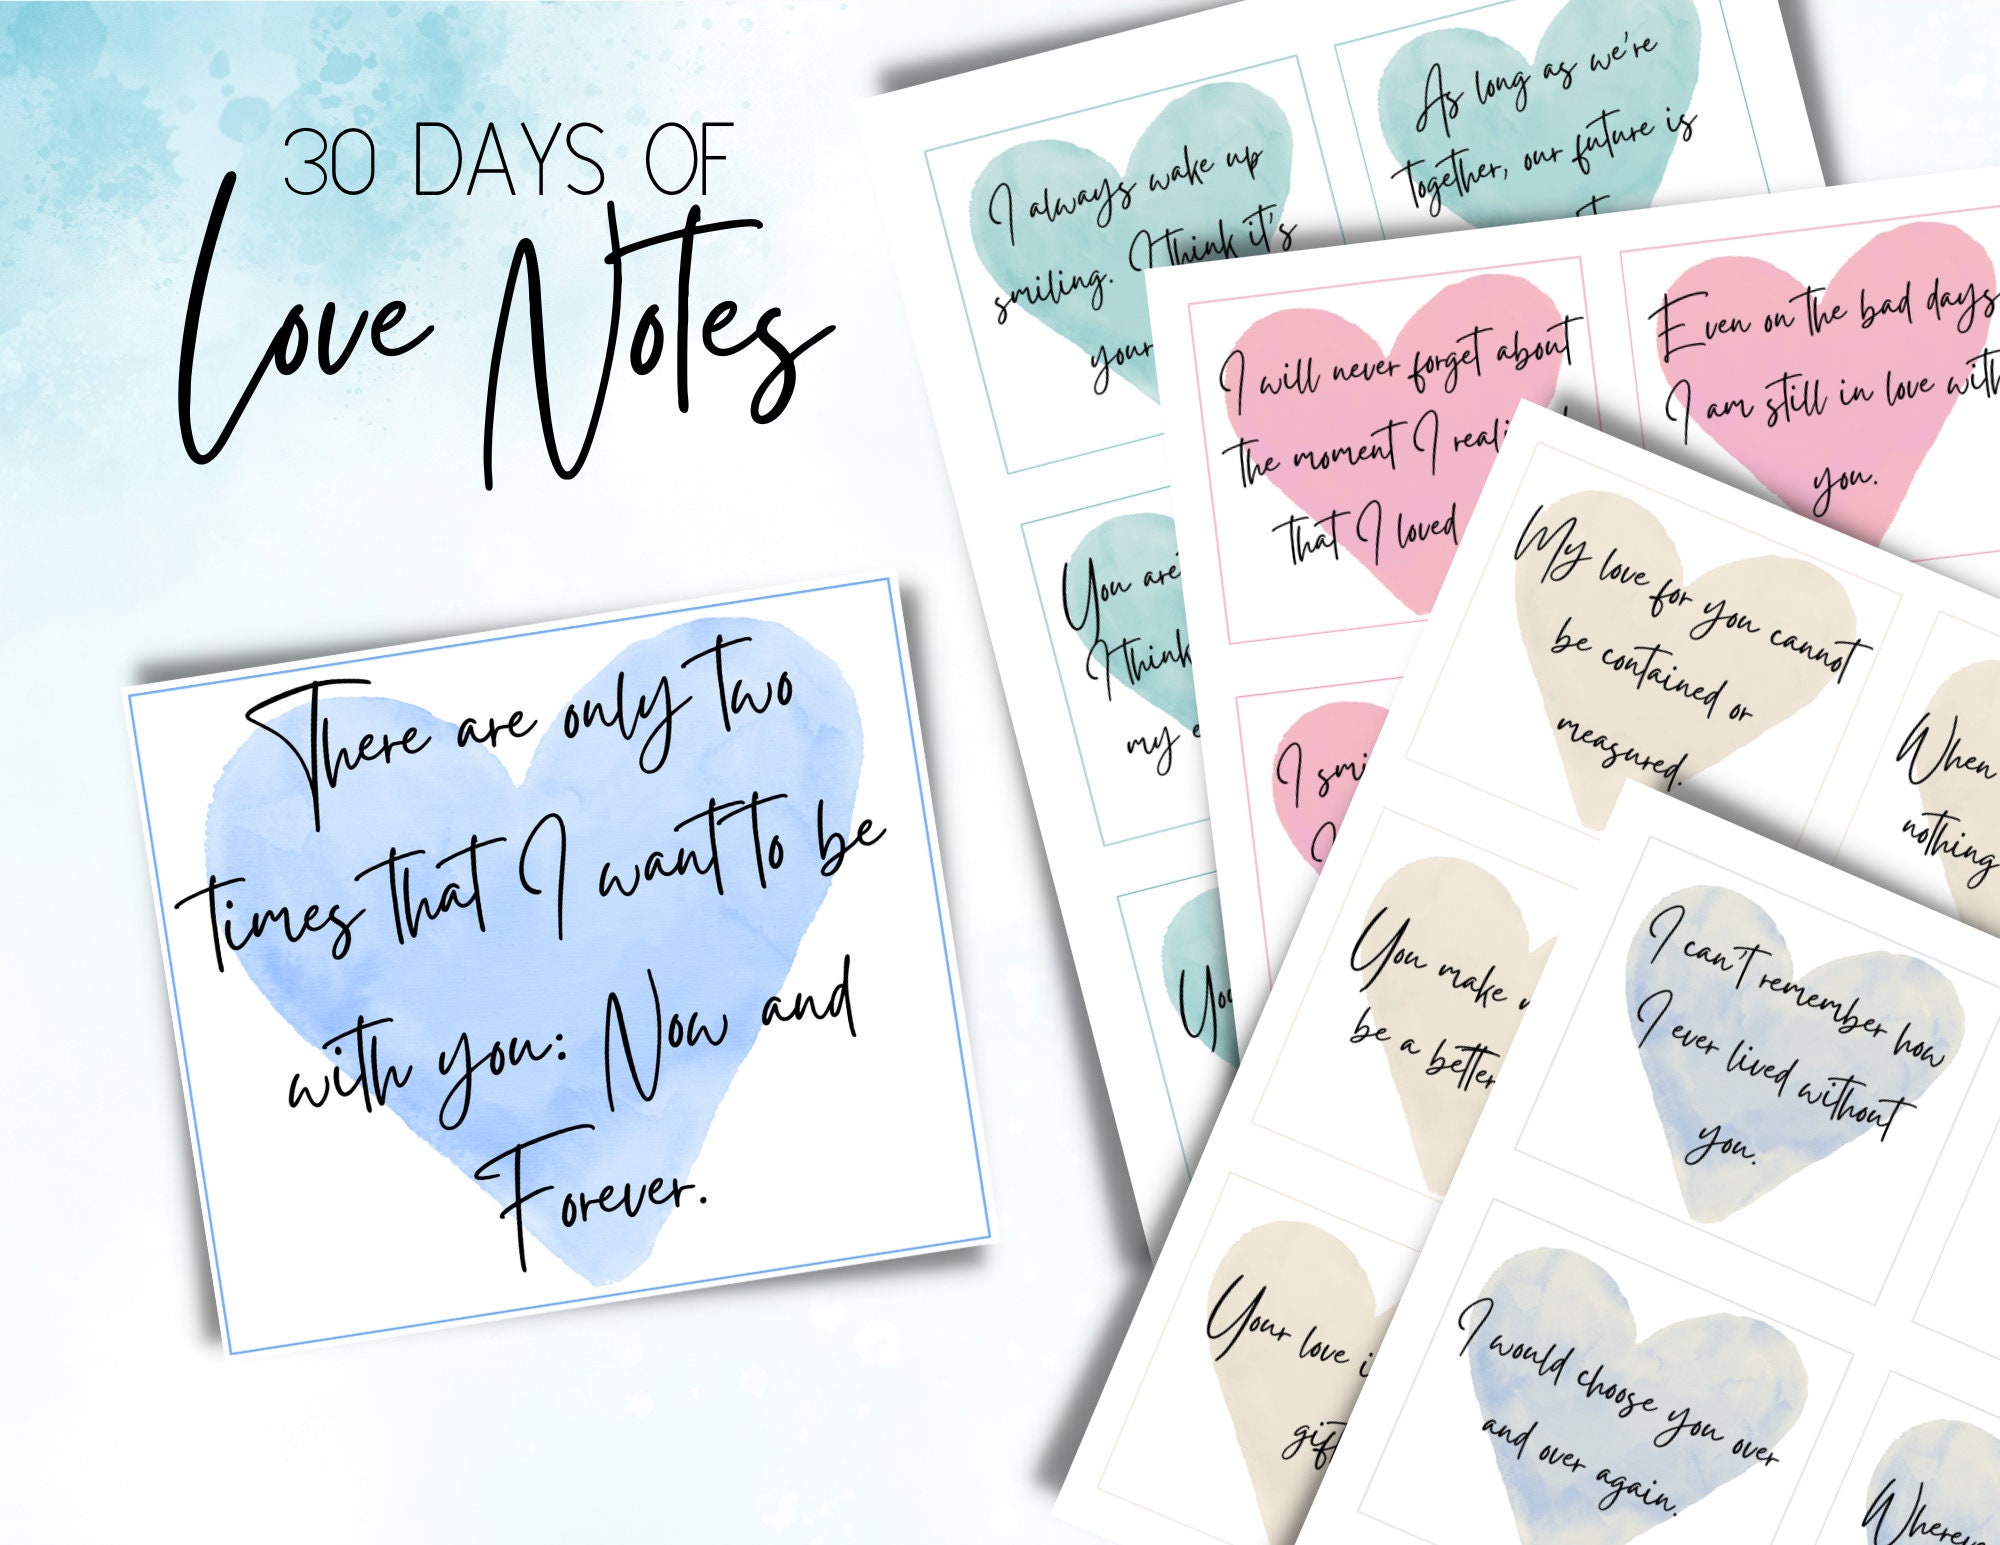 30 DAYS OF
Love Notes
There are only two
times that I want to be
with you: Now and
Forever.
I always wake up
smiling. I think it's
your
As long as we're
together, our future is
You are
I think
my
You
I will never forget about
the moment I
that I loved
Even on the bad days
I am still in love with
you.
I
I
My love for you cannot
be contained or
measured.
When
nothing
You make
be a better
Your love
I can't remember how
I ever lived without
you.
I would choose you over
and over again.